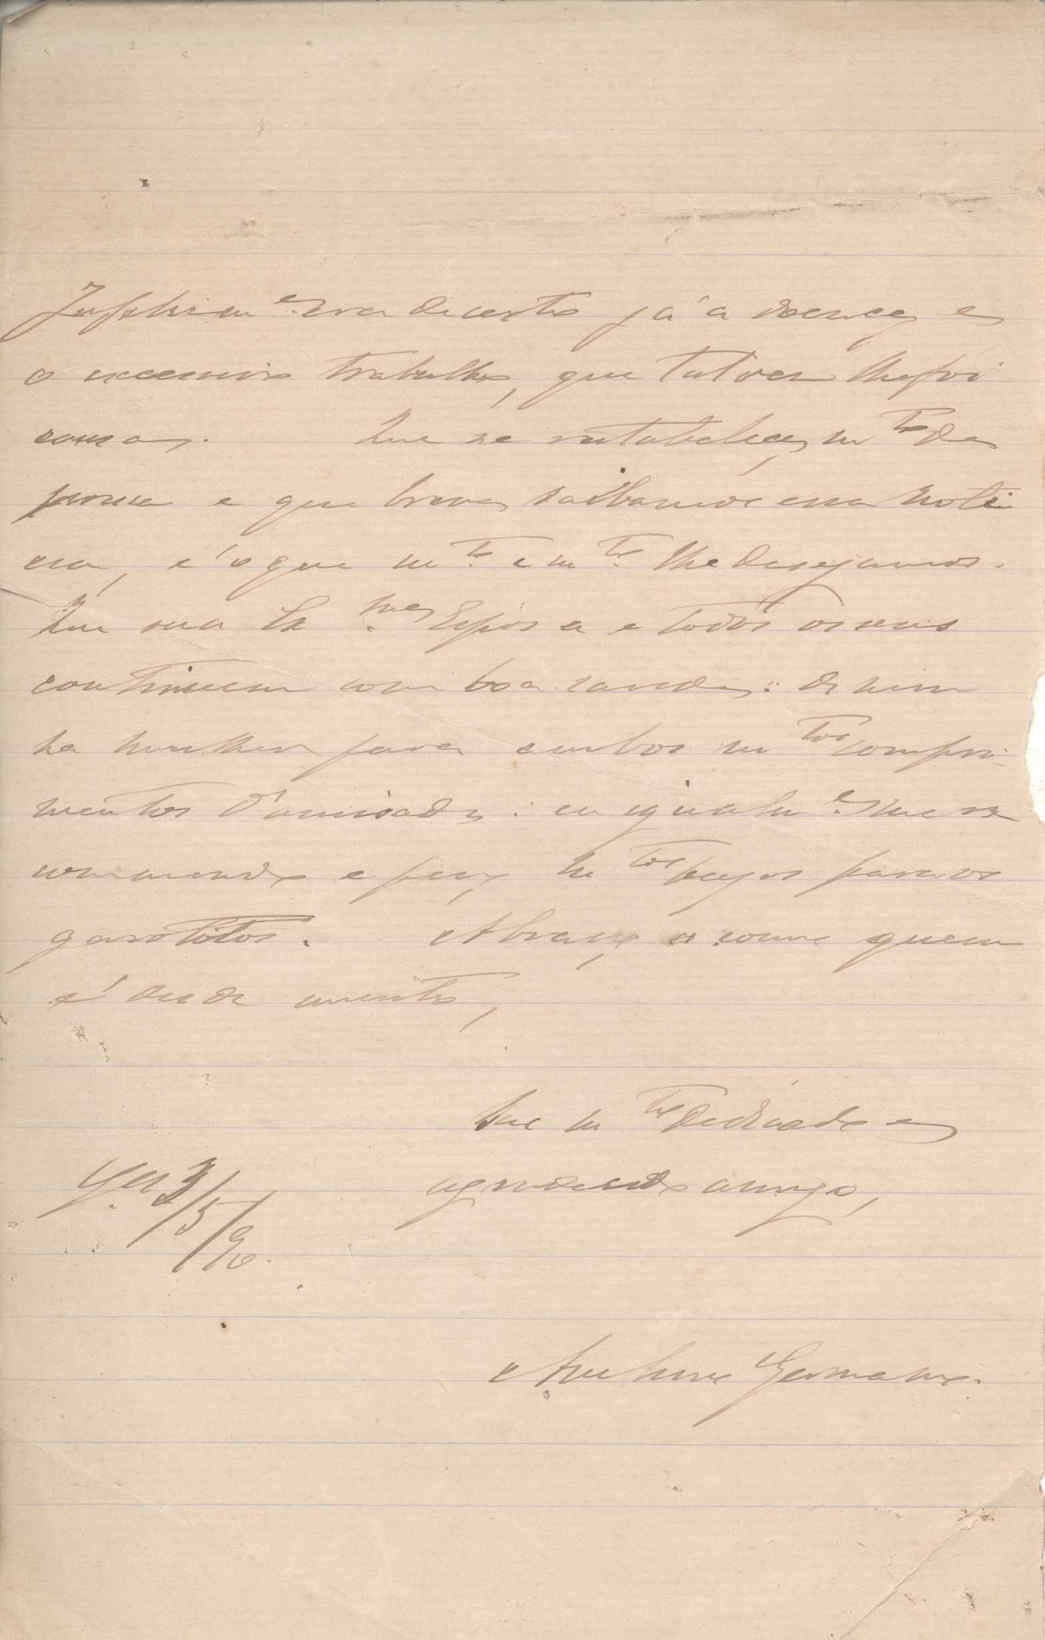 era de certo já a doença e
o excessivo trabalho, que talvez lhe foi
causa. Que se restabeleça m.to de
pressa e que breve saibamos essa noti
cia, é o que m.to e m.to lhe desejamos.
Que sua Ex.ma Espôsa e todos os seus
continuem com boa saude: de min
ha mulher para ambos m.tos compri-
mentos d'amisade: eu igualm.e me re
commendo e peço m.tos beijos para os
garotitos. Abraça-o como quem
é desde muito,
Seu m.to dedicado e
agradecido amigo,
3/5/90.
Germano.